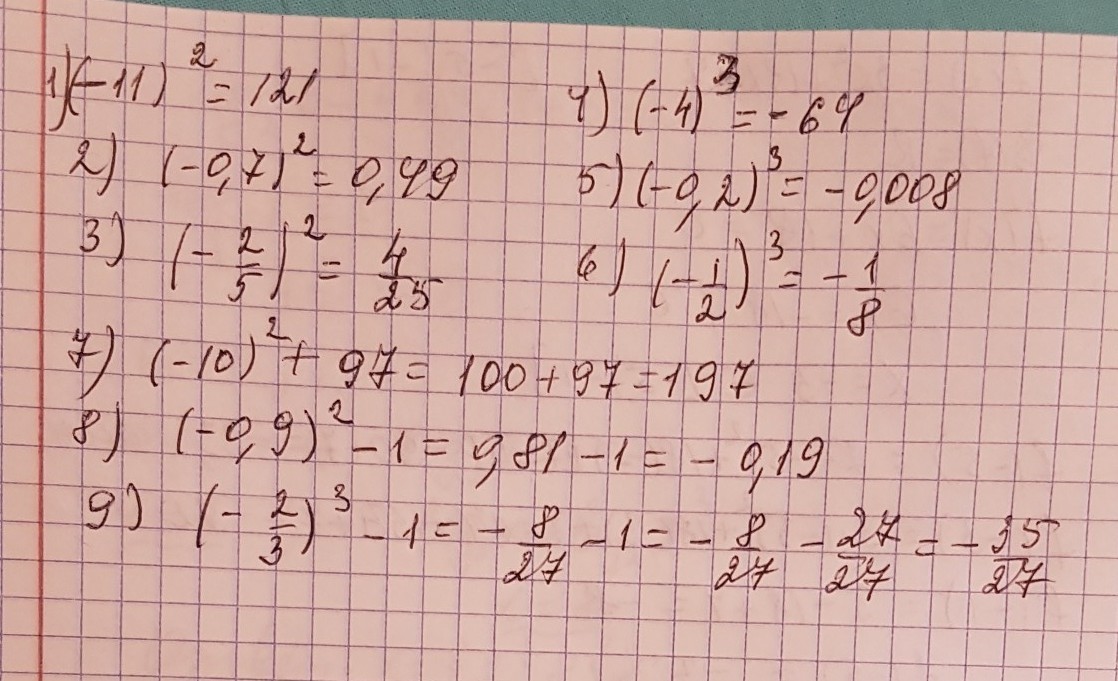 1) (-11)² = 121
4) (-4)³ = -64
2) (-0,7)² = 0,49
5) (-0,2)³ = -0,008
3) (-2/5)² = 4/25
6) (-1/2)³ = -1/8
7) (-10)² + 97 = 100 + 97 = 197
8) (-0,9)² - 1 = 0,81 - 1 = - 0,19
9) (-2/3)³ - 1 = -8/27 - 1 = -8/27 - 27/27 = -35/27